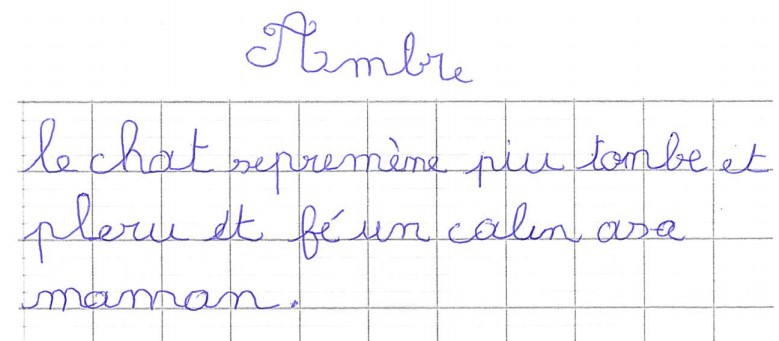 Ambre
le chat sepremène piu tombe et
pleru et fé un calin asa
maman.